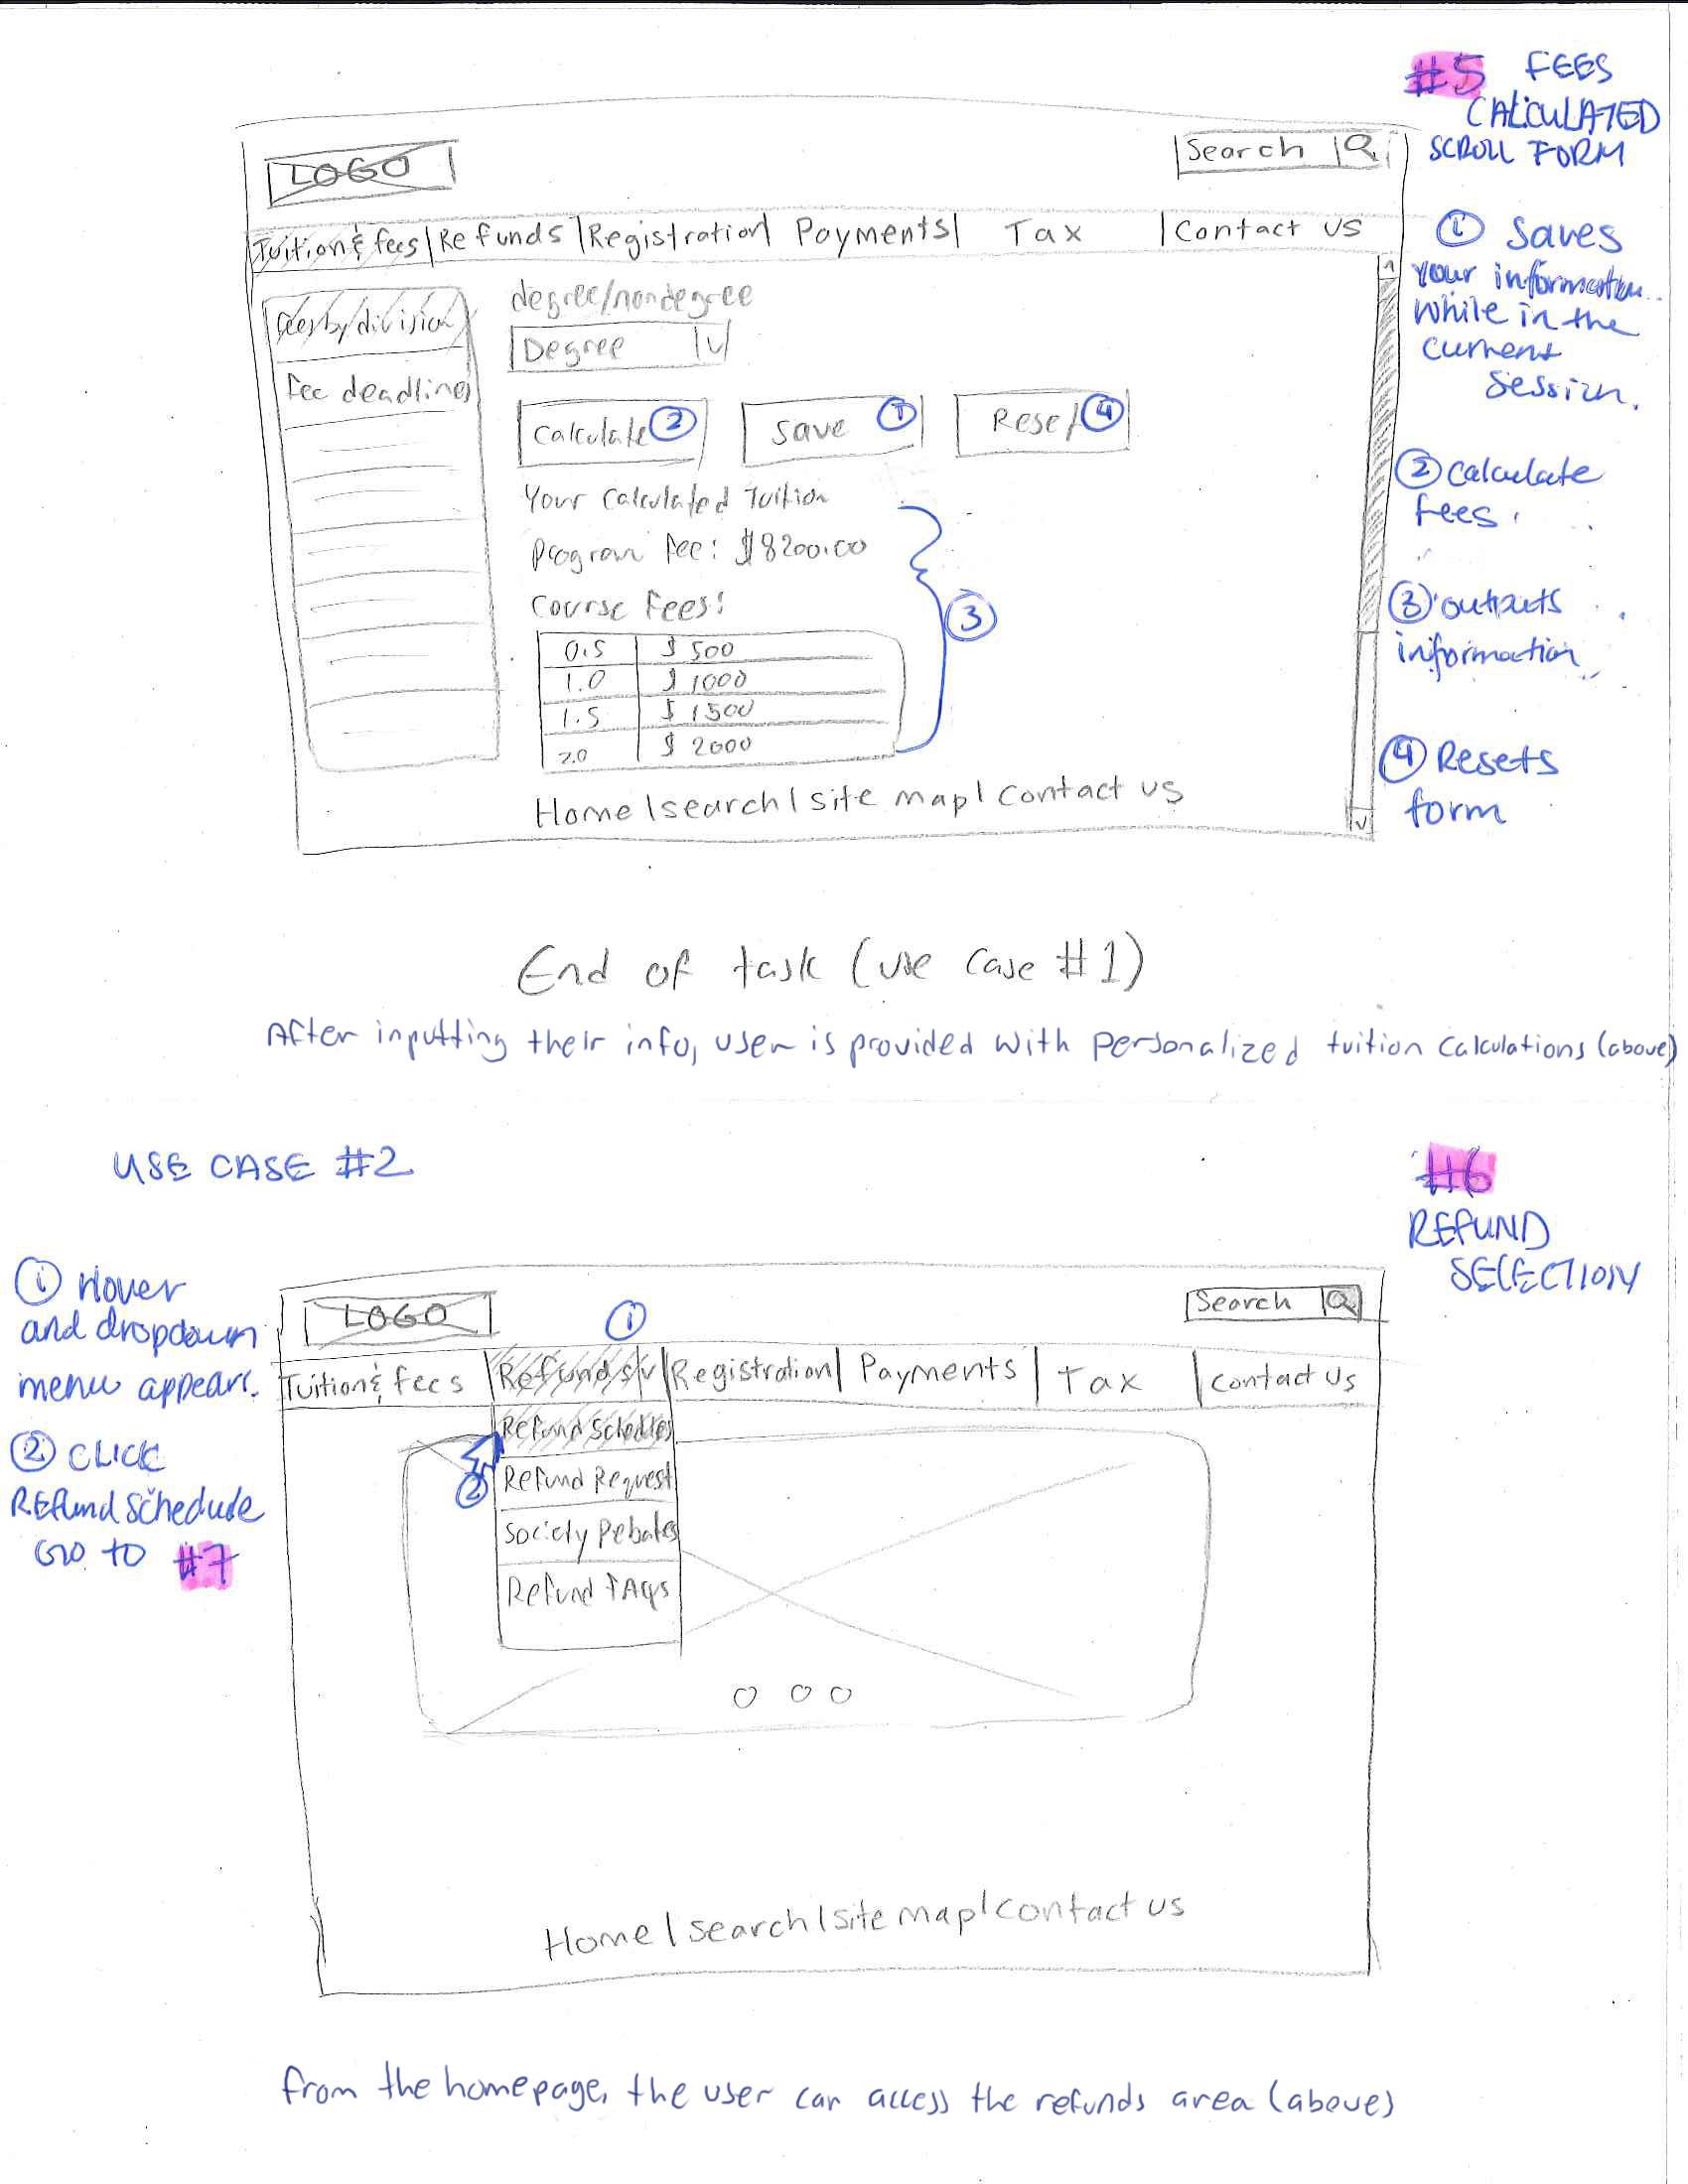 #5 FEES
CALCULATED
SCROLL FORM
LOGO
Search
Tuition & fees | Refunds | Registration | Payments | Tax | Contact us
fees by division
Fee deadlines
degree/nondegree
Degree
Calculate ②
Save ①
Reset ④
Your Calculated Tuition
Program Fee: $8200.00
Course Fees:
0.5 $ 500
1.0 $ 1000
1.5 $ 1500
2.0 $ 2000
③
Home | search | site map | contact us
① Saves
Your information
while in the
current
session.
② Calculate
fees.
③ outputs
information
④ Resets
form
End of task (use case #1)
After inputting their info, user is provided with personalized tuition calculations (above)
USE CASE #2
#6
REFUND
SELECTION
① Hover
and dropdown
menu appears.
② CLICK
REfund Schedule
GO TO #7
LOGO
①
Search
Tuition & fees | Refunds v | Registration | Payments | Tax | Contact Us
Refund Schedules
②
Refund Request
Society Rebates
Refund FAQs
Home | search | site map | contact us
from the homepage, the user can access the refunds area (above)